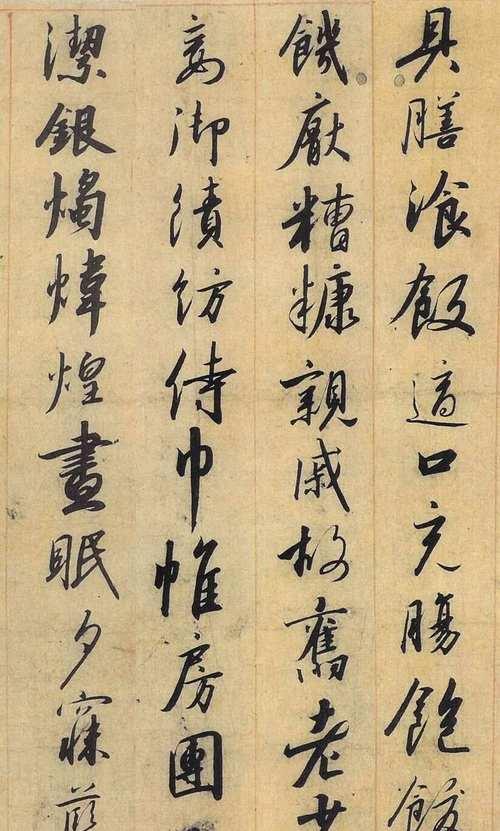 具膳湌飯適口充腸飽飫
饑厭糟糠親戚故舊老少
妾御績紡侍巾帷房團
潔銀燭煒煌晝眠夕寐